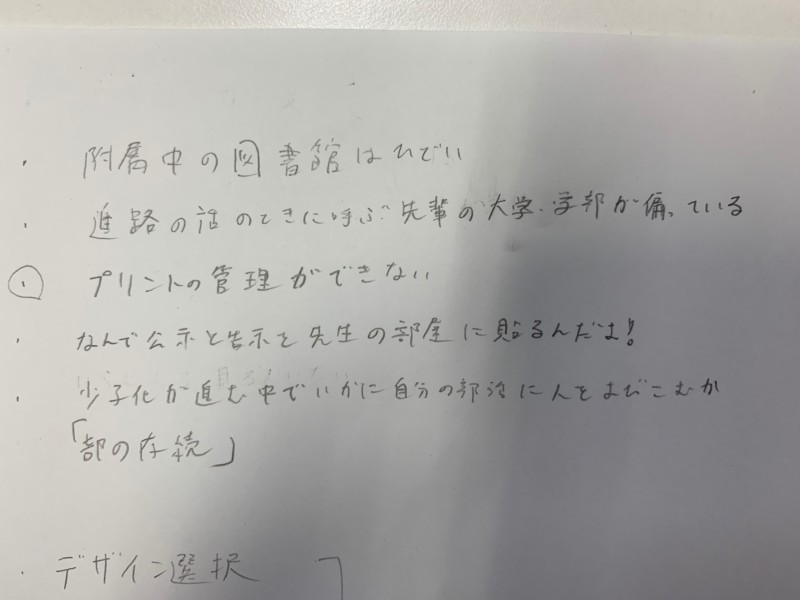 ・附属中の図書館はひでい
・進路の話のときに呼ぶ先輩の大学・学部が偏っている
・プリントの管理ができない
・なんで公示と告示を先生の部屋に貼るんだよ!
・少子化が進む中でいかに自分の部活に人をよびこむか
「部の存続」
・デザイン選択